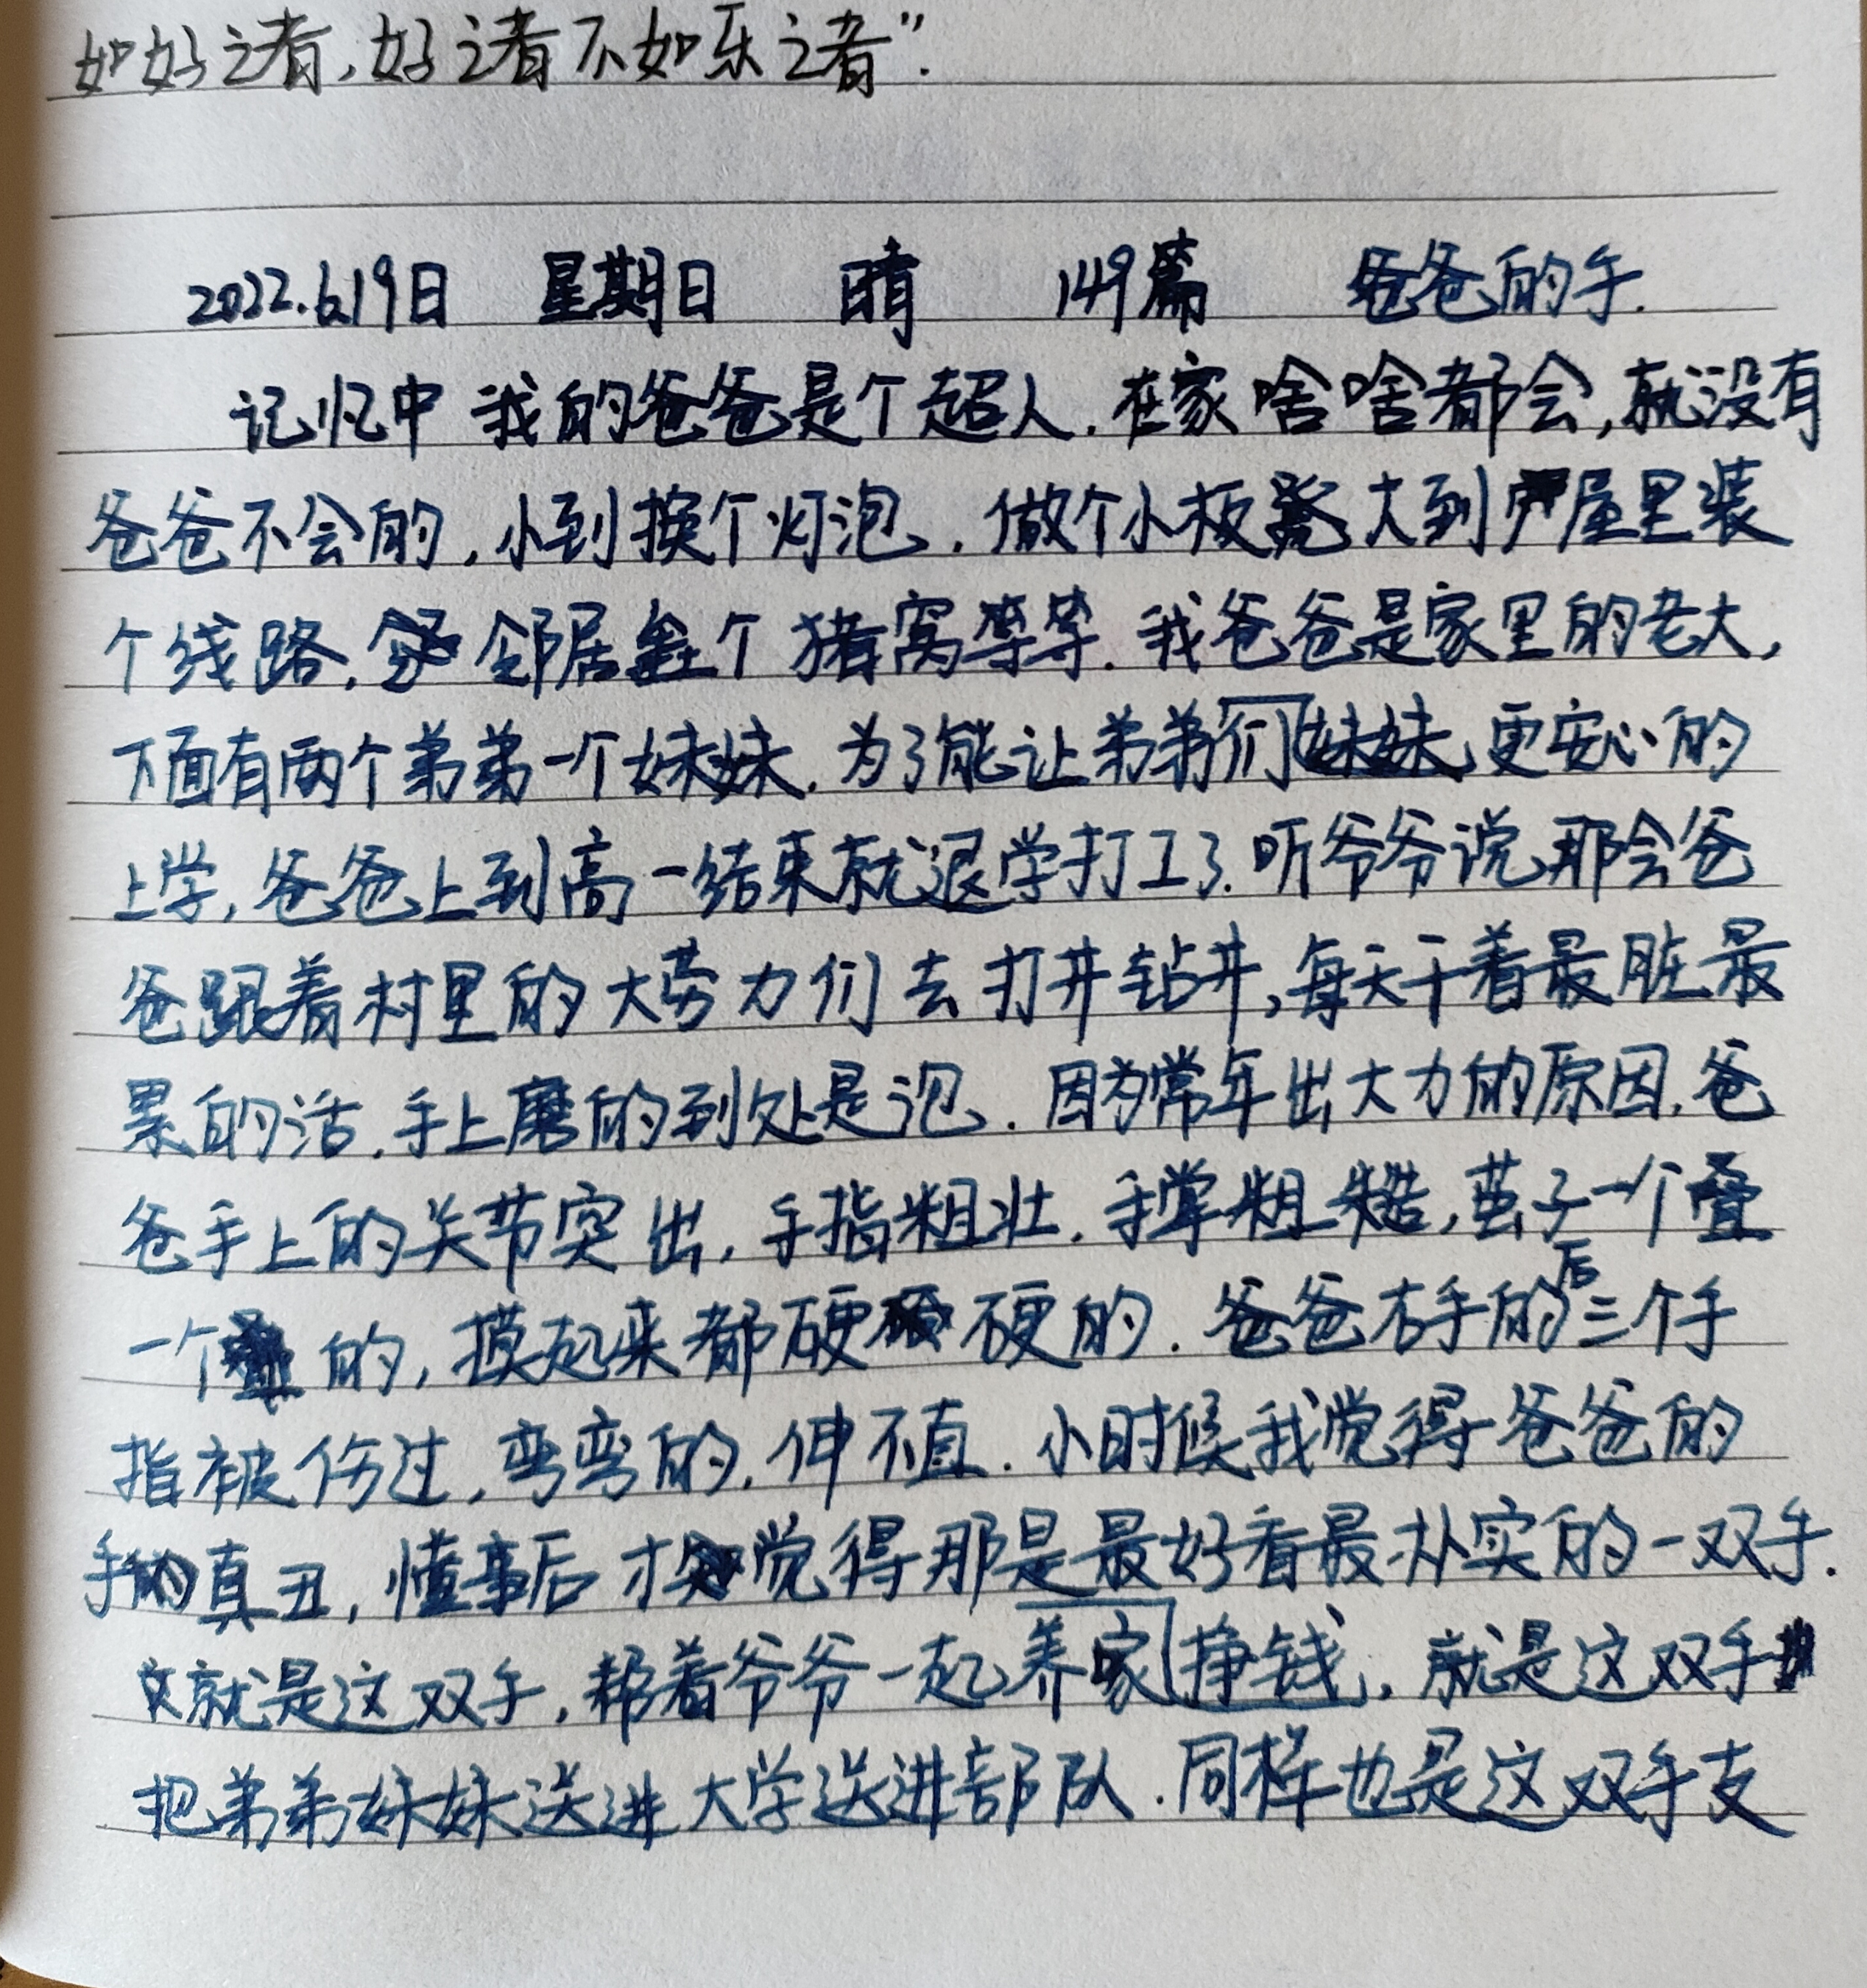 如好之者,好之者不如乐之者”.
2022.6.19日 星期日 晴 149篇 爸爸的手.
记忆中我的爸爸是个超人.在家啥啥都会,就没有
爸爸不会的,小到换个灯泡.做个小板凳大到屋里装
个线路,邻居垒个猪窝等等.我爸爸是家里的老大,
下面有两个弟弟一个妹妹.为了能让弟弟们妹妹更安心的
上学,爸爸上到高一结束就退学打工了.听爷爷说那会爸
爸跟着村里的大劳力们去打井钻井,每天干着最脏最
累的活.手上磨的到处是泡.因为常年出大力的原因.爸
爸手上的关节突出,手指粗壮.手掌粗糙,茧子一个叠
一个的,摸起来都硬硬的.爸爸右手的后三个手
指被伤过,弯弯的.伸不直.小时候我觉得爸爸的
手的真丑,懂事后才觉得那是最好看最朴实的一双手.
就是这双手,帮着爷爷一起养家挣钱,就是这双手
把弟弟妹妹送进大学送进部队.同样也是这双手支